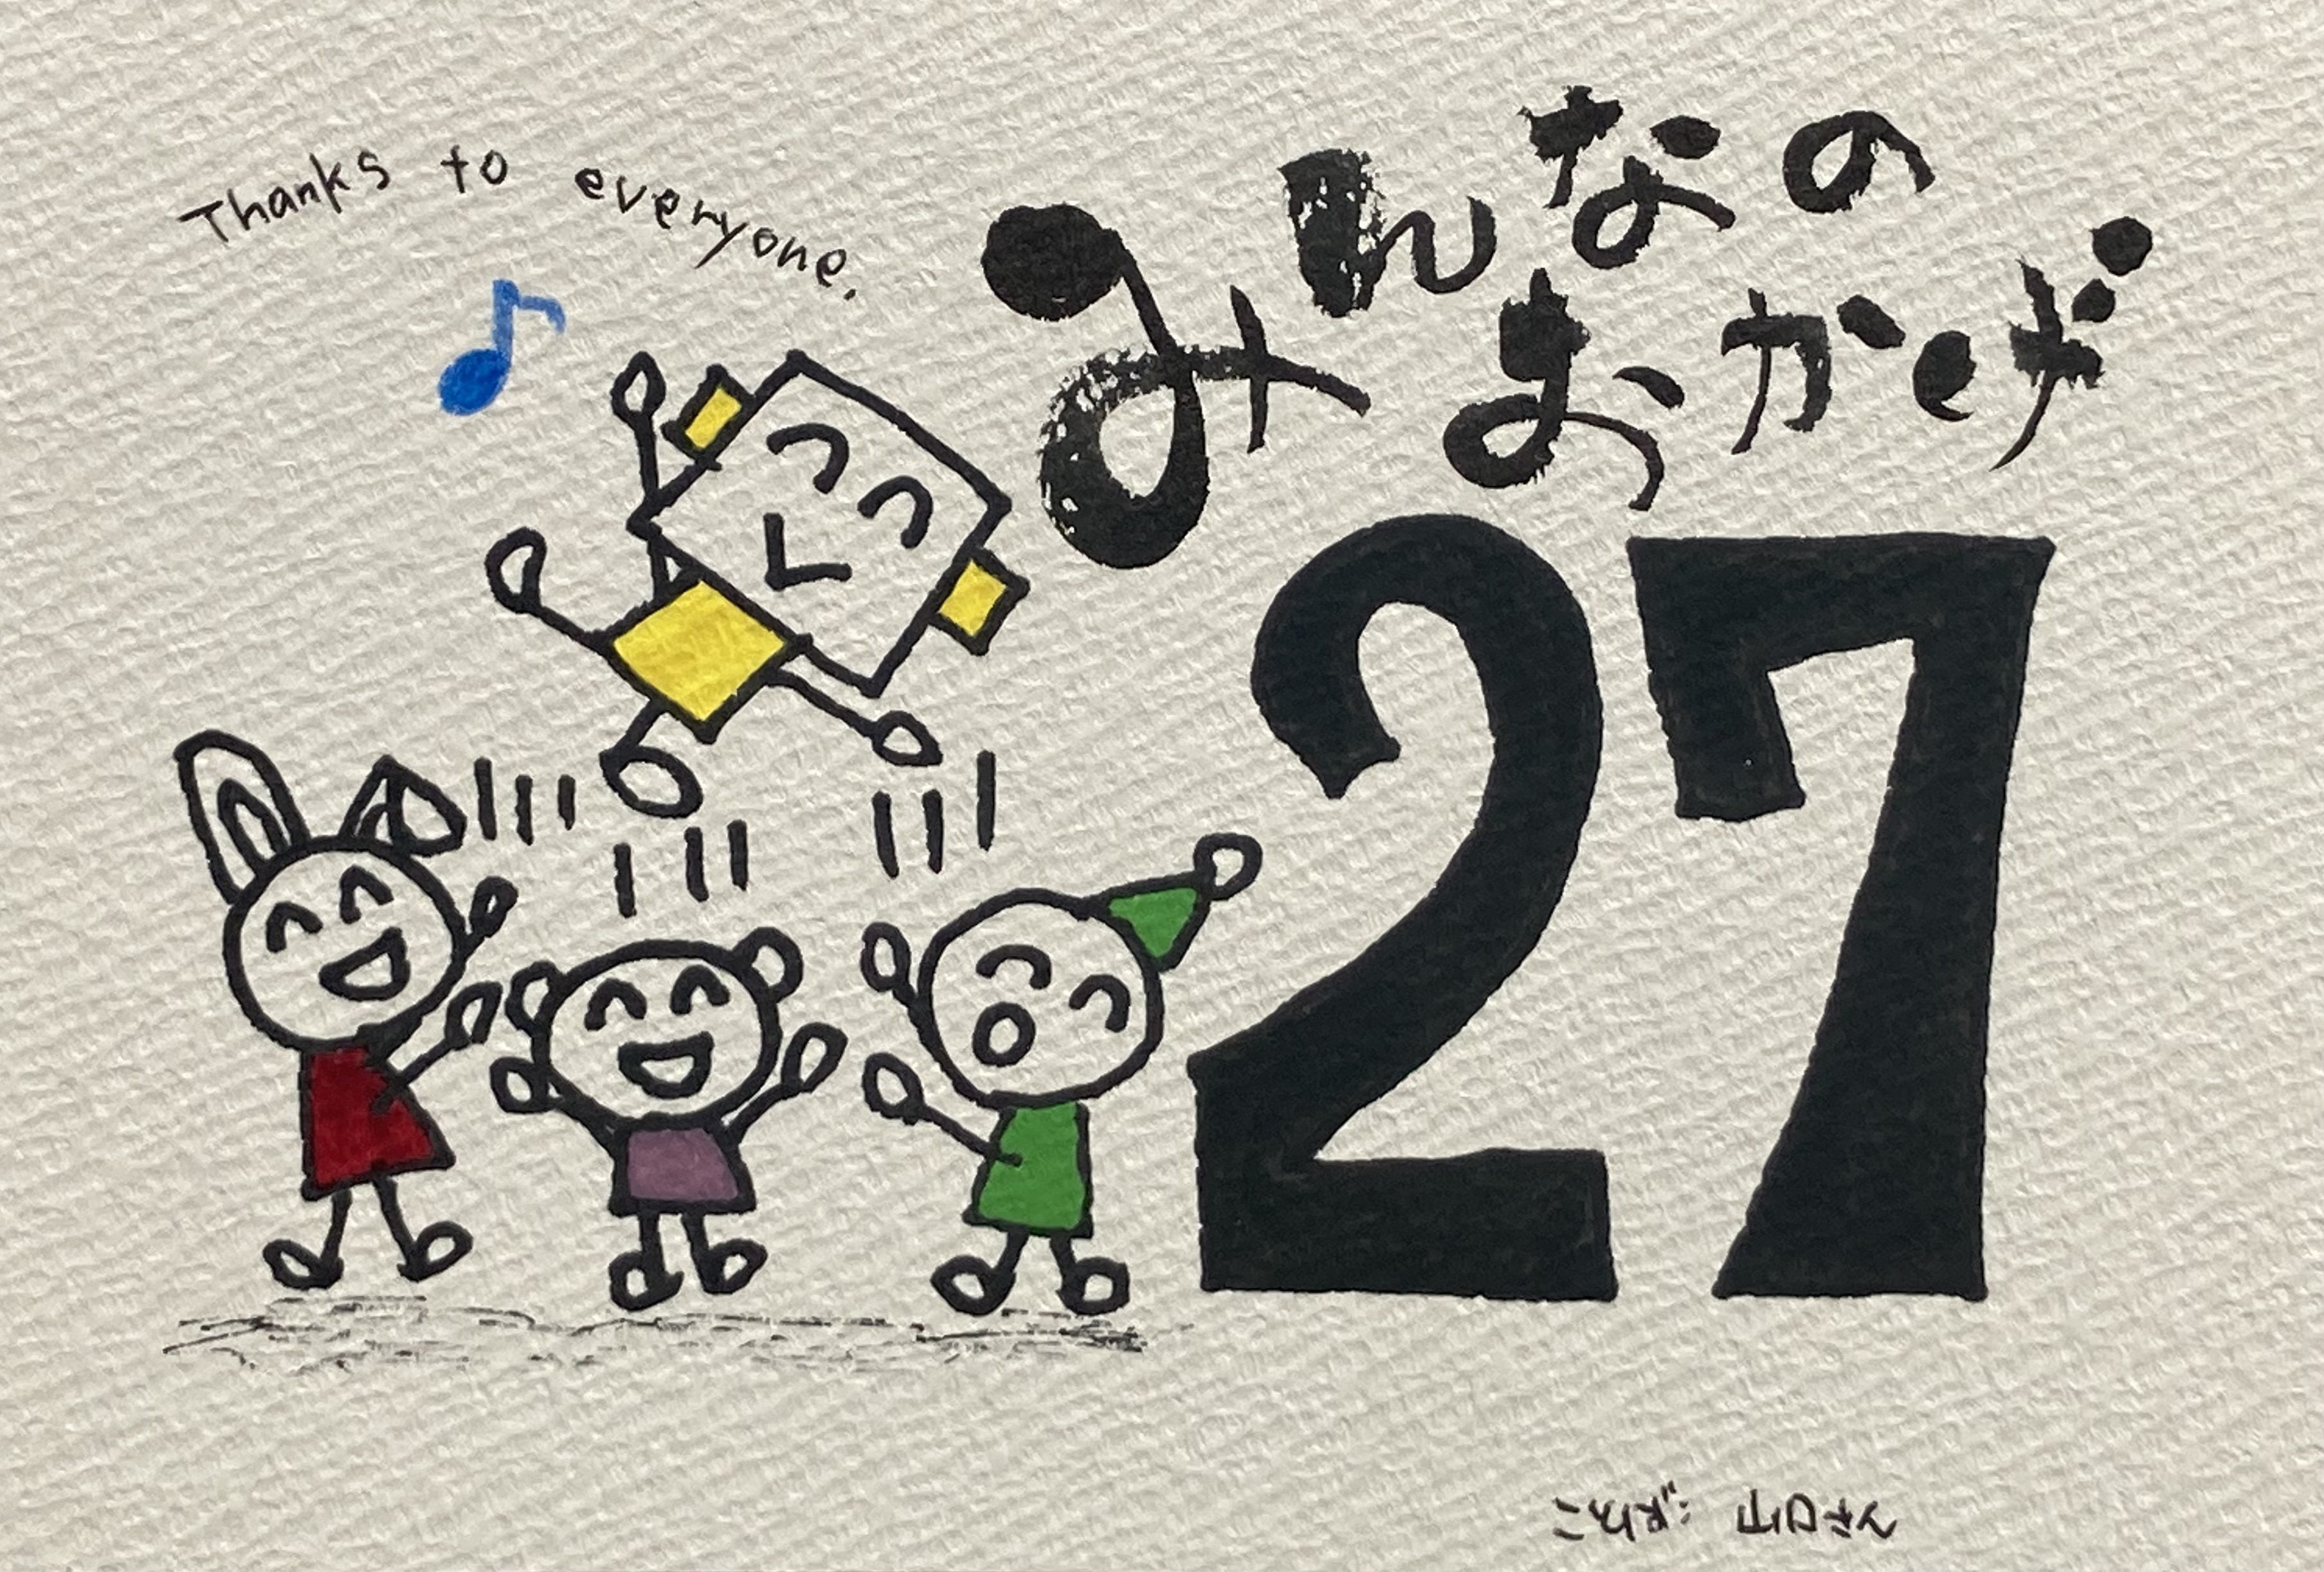 Thanks to everyone.
みんなの
おかげ
27
ことば: 山口さん